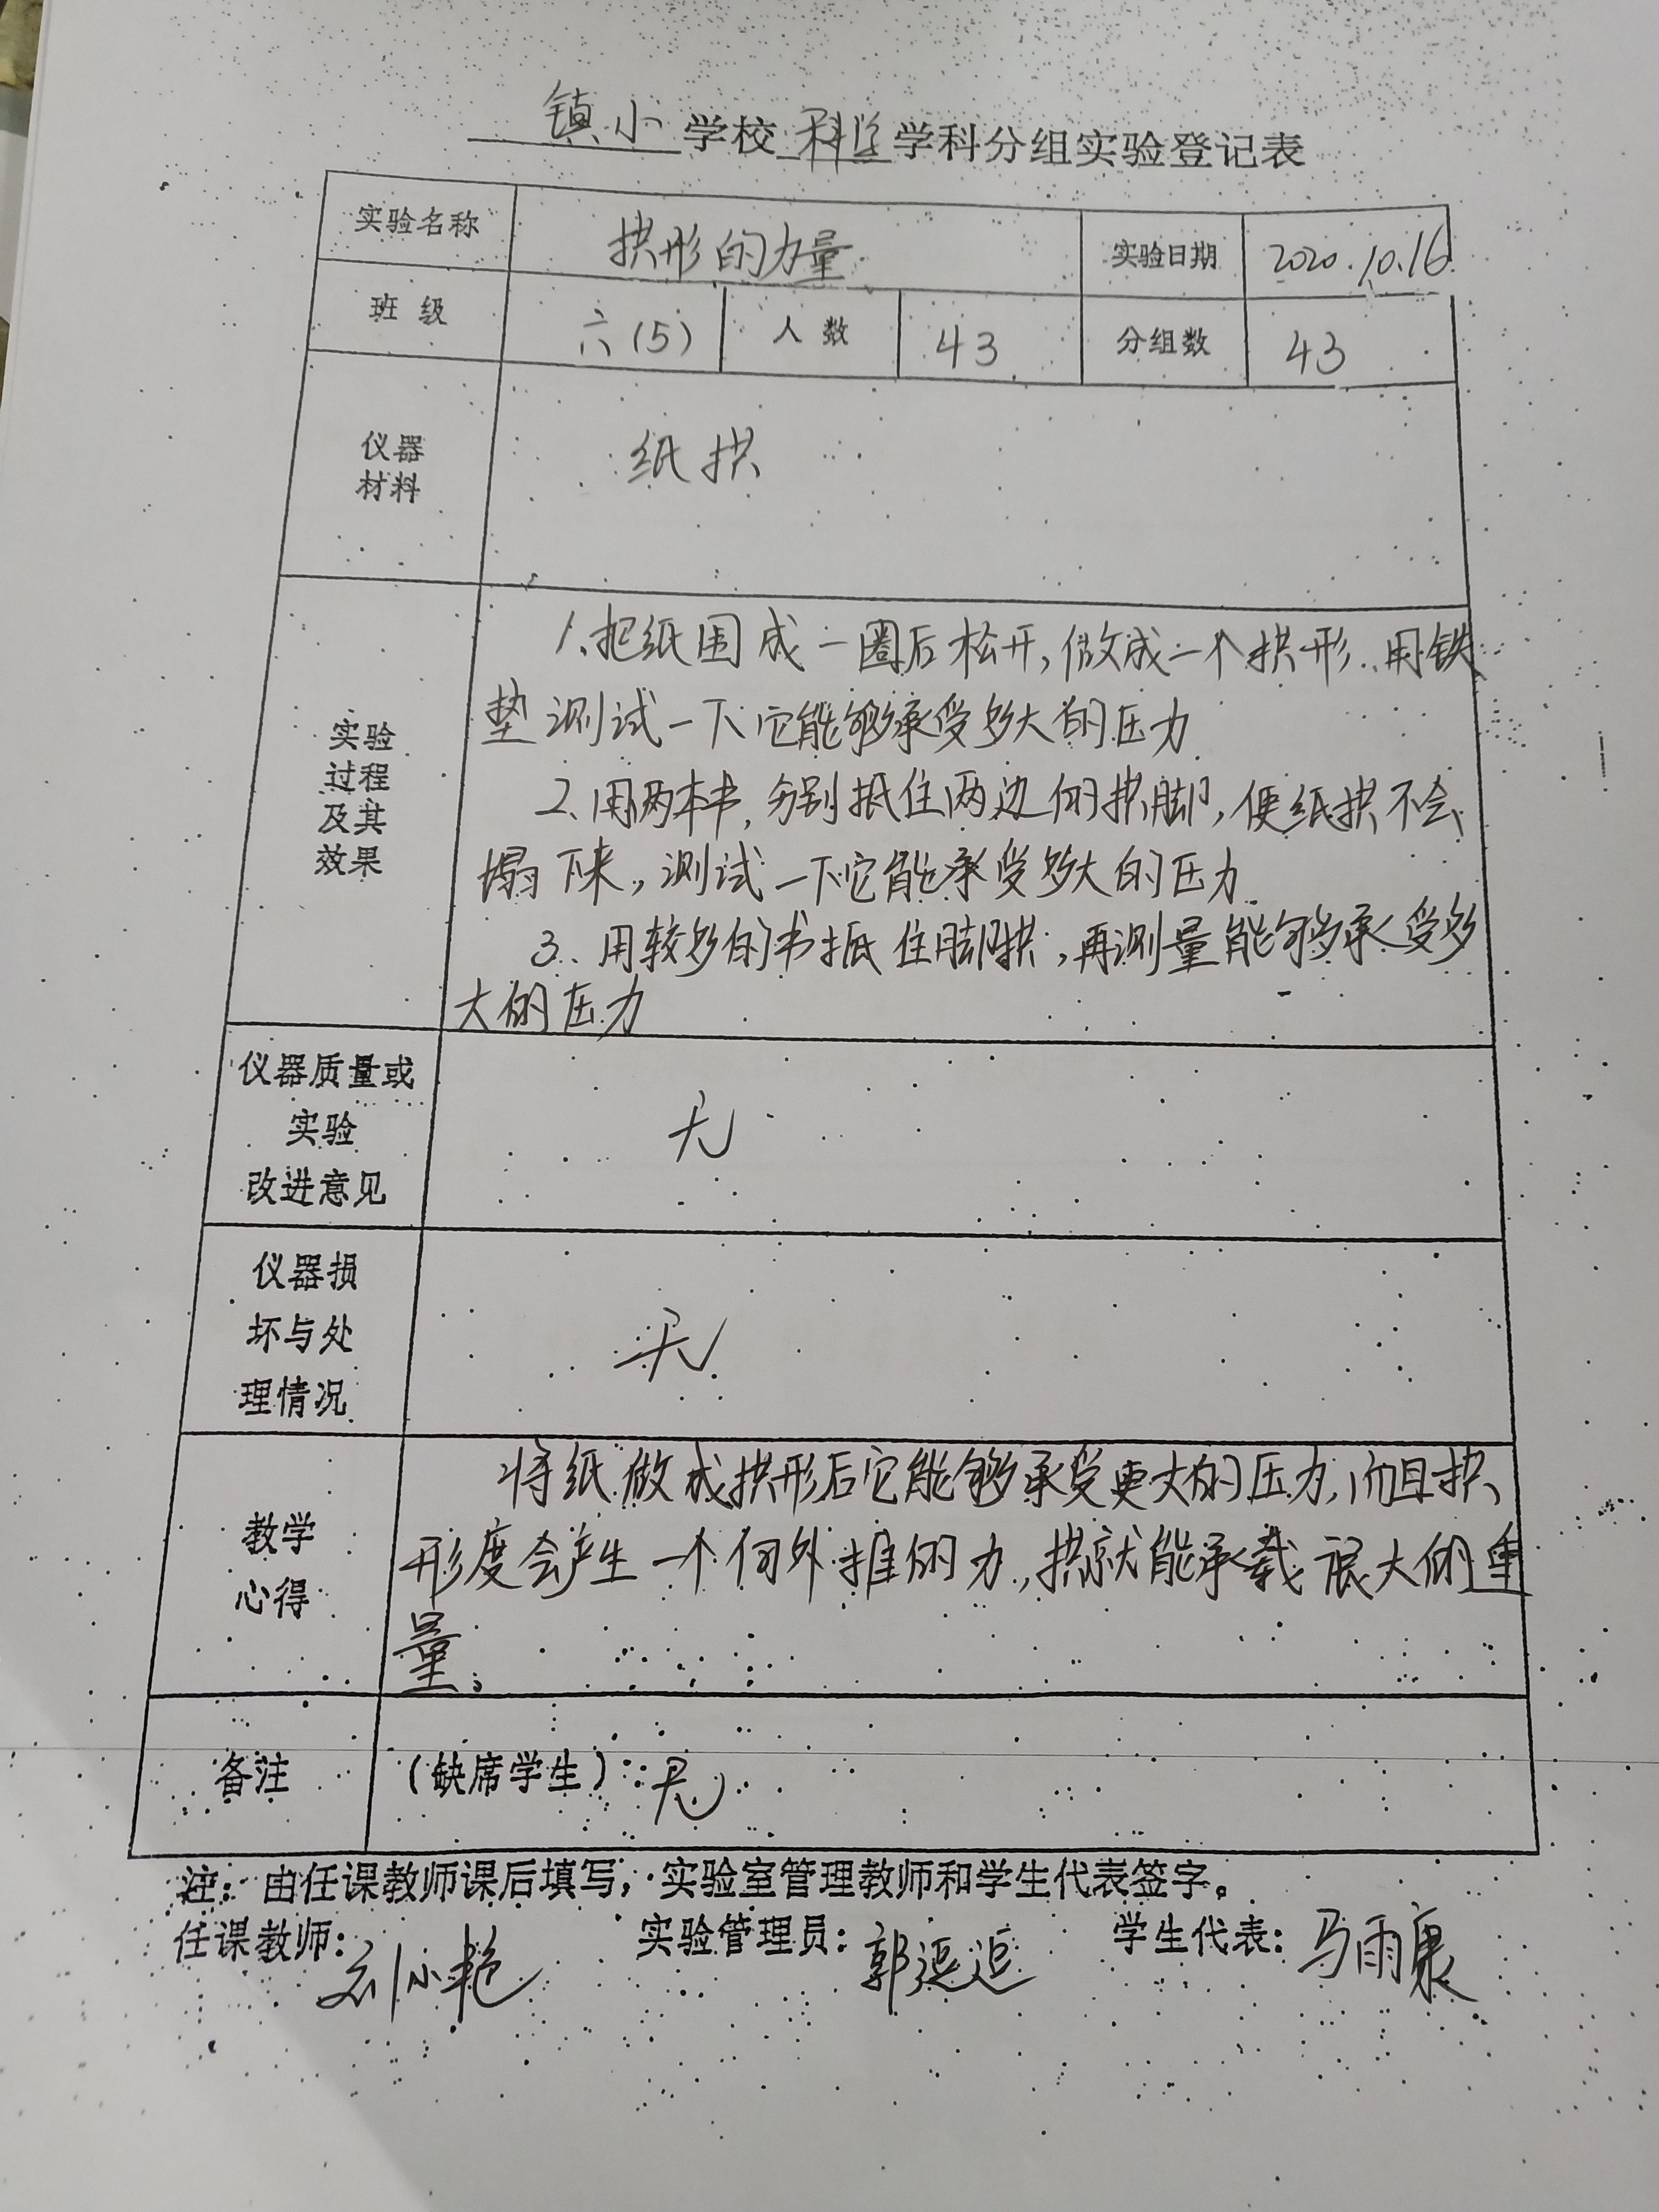 镇小学校科学学科分组实验登记表
实验名称 拱形的力量 实验日期 2020.10.16
班级 六(5) 人数 43 分组数 43
仪器
材料
纸拱
实验
过程
及其
效果
1、把纸围成一圈后松开,做成一个拱形.用铁
垫测试一下它能够承受多大的压力
2、用两本书,分别抵住两边的拱脚,使纸拱不会
塌下来,测试一下它能承受多大的压力
3、用较多的书抵住脚拱,再测量能够承受多
大的压力
仪器质量或
实验
改进意见
无
仪器损
坏与处
理情况
无
教学
心得
将纸做成拱形后它能够承受更大的压力,而且拱
形度会产生一个向外推的力,拱就能承载很大的重
量。
备注 (缺席学生):无
注:由任课教师课后填写,实验室管理教师和学生代表签字。
任课教师:刘小艳 实验管理员:郭 学生代表:马雨康